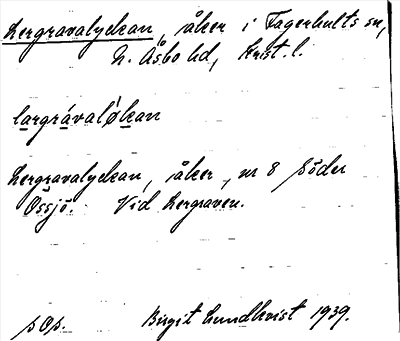 Lergravalyckan, åker i Fagerhults sn,
N. Åsbo hd, Krist. l.
largràvalỳkan
Lergravalyckan, åker, nr 8 Söder
Össjö. Vid Lergraven.
Birgit Lundkvist 1939.